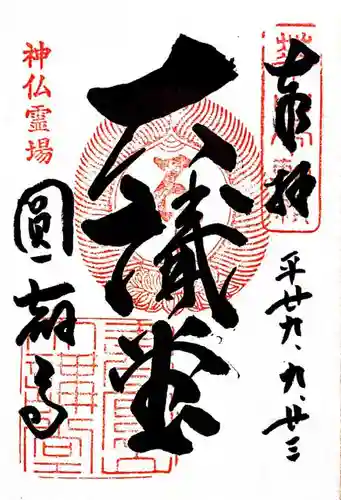 奉拝
平廿九、九、廿三
大講堂
神仏霊場
圓教寺